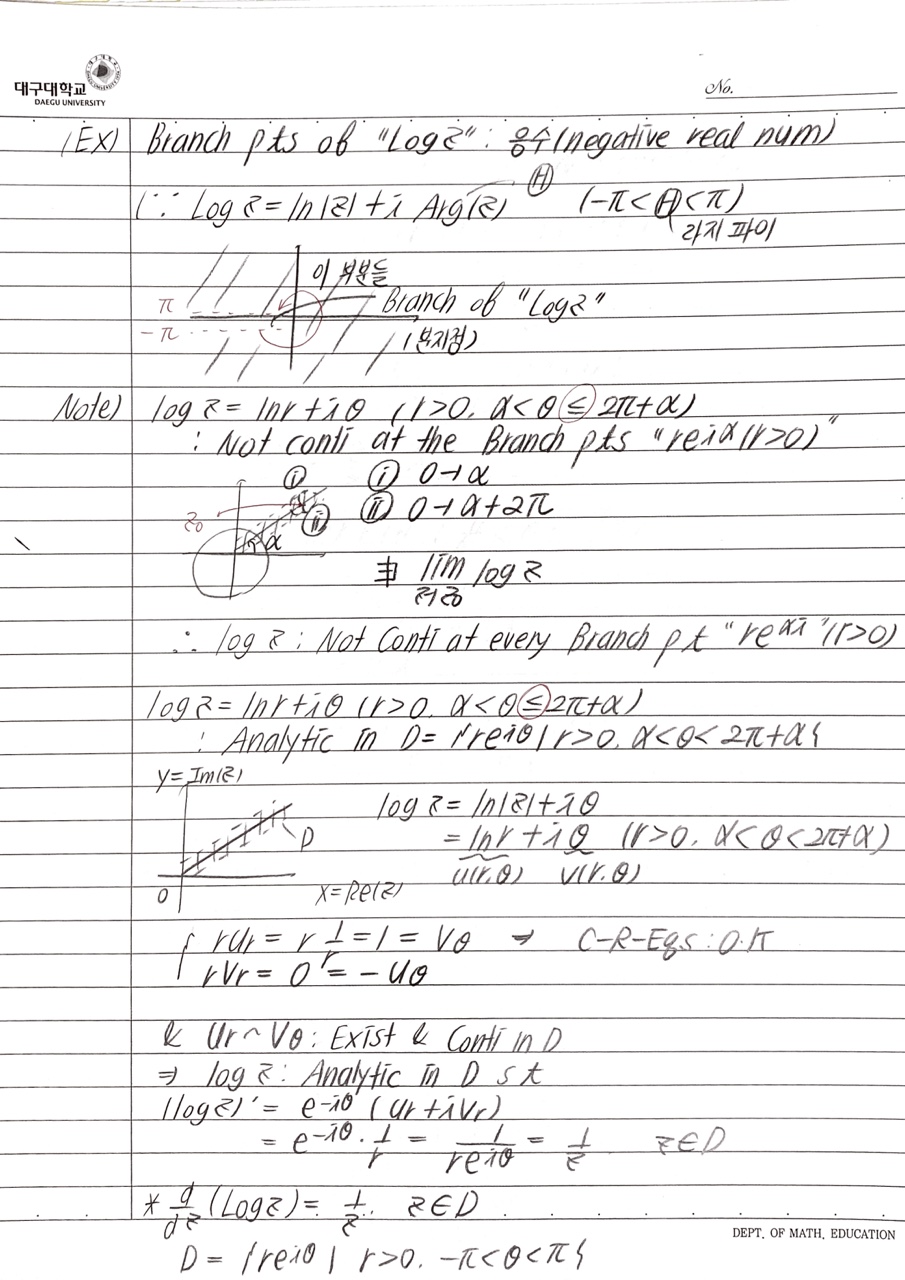 대구대학교
DAEGU UNIVERSITY
No.
(Ex) Branch pts of "Log z" : 음수(negative real num)
(∵ Log z = ln|z| + i Arg(z) Ⓗ (-π < Ⓗ < π)
라지 파이
이 부분들
π
-π
Branch of "Log z"
(분지점)
Note) log z = lnr + iθ (r>0. α < θ ≤ 2π+α)
: Not conti at the Branch pts "re^iα (r>0)"
ⓘ ⓘ 0→α
z₀ ⓘⓘ ⓘⓘ 0→α+2π
α
∄ lim log z
z→z₀
∴ log z : Not Conti at every Branch pt "re^αi" (r>0)
log z = lnr + iθ (r>0. α < θ ≤ 2π+α)
: Analytic in D = {re^iθ | r>0. α < θ < 2π+α}
y = Im(z)
log z = ln|z| + iθ
D = lnr + iθ (r>0. α < θ < 2π+α)
u(r.θ) v(r.θ)
0 x = Re(z)
{ rUr = r 1/r = 1 = Vθ ⇒ C-R-Eqs : O.K
rVr = 0 = -Uθ
& Ur ~ Vθ : Exist & Conti in D
⇒ log z : Analytic in D s t
(log z)' = e^-iθ (Ur + iVr)
= e^-iθ · 1/r = 1/re^iθ = 1/z z∈D
* d/dz (Log z) = 1/z. z∈D
DEPT. OF MATH. EDUCATION
D = {re^iθ | r>0. -π < θ < π}